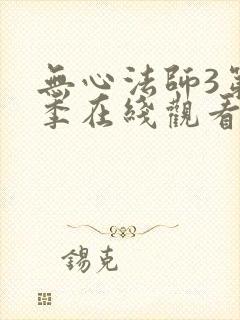 無心法師3第
季在綫觀看
錫克